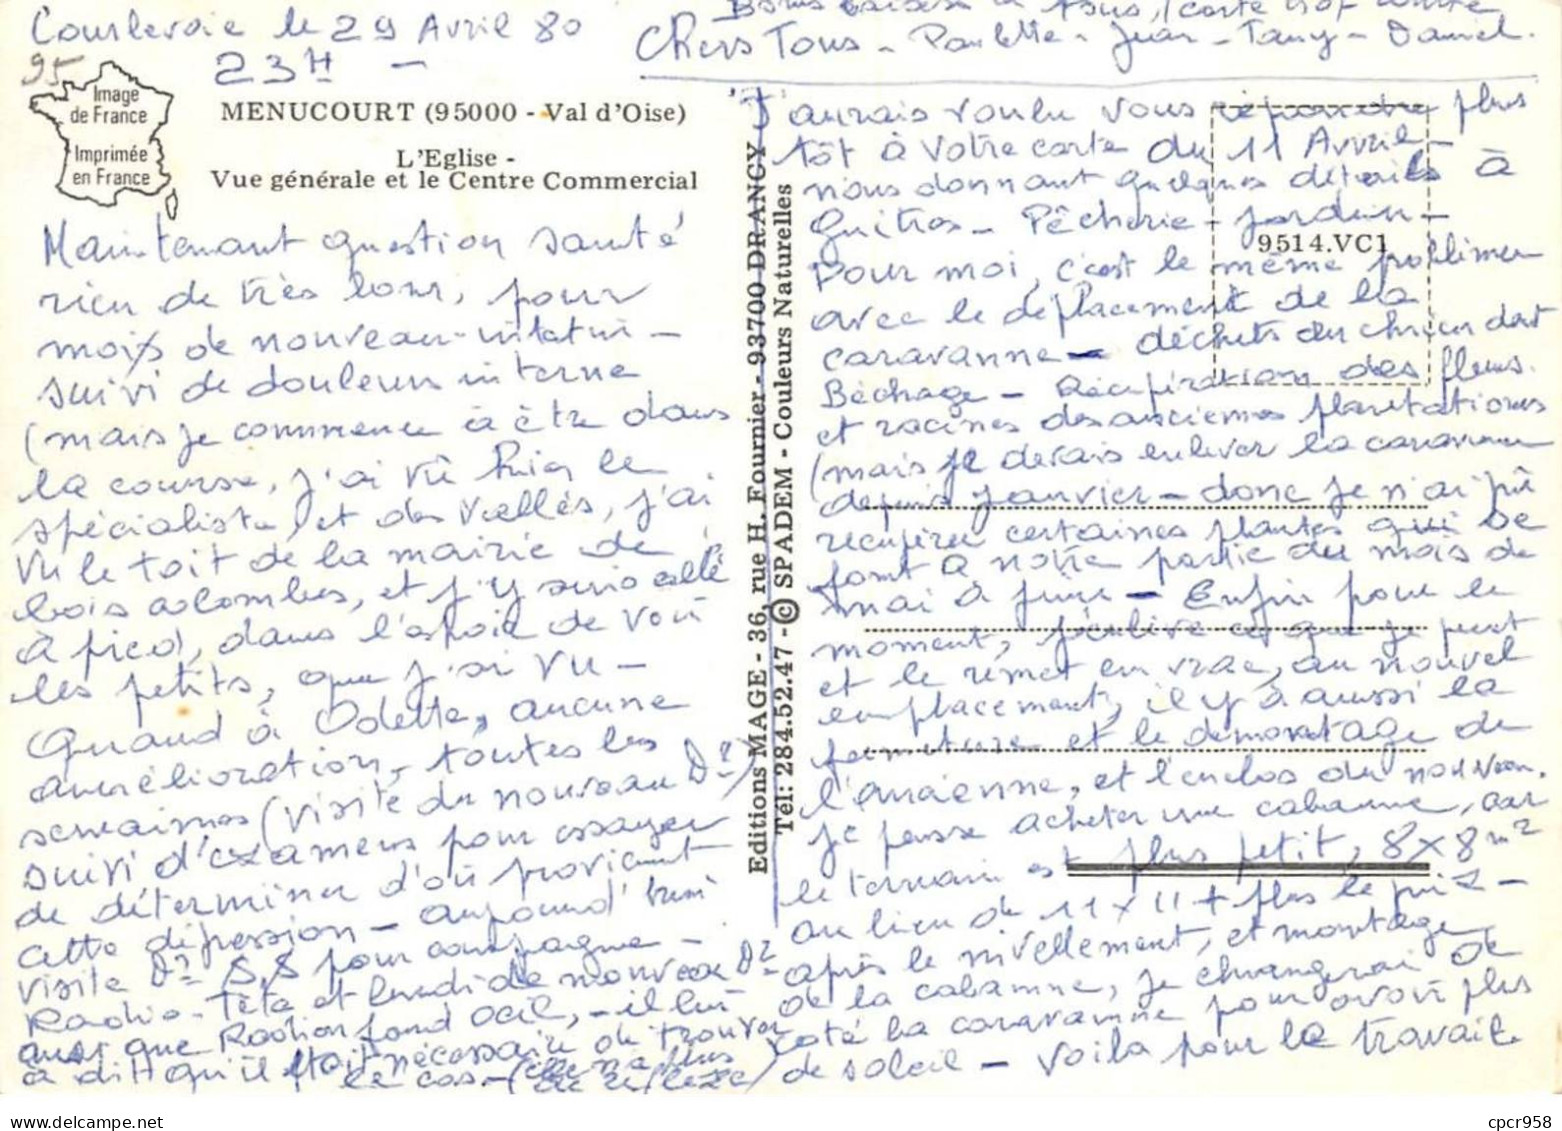 Courbevoie le 29 Avril 80
23H -
95
Chers Tous - Paulette - Jean - Tany - Daniel.
Image
de France
Imprimée
en France
MENUCOURT (95000 - Val d'Oise)
L'Eglise -
Vue générale et le Centre Commercial
Editions MAGE - 36, rue H. Fournier - 93700 DRANCY
Tél: 284.52.47 - © SPADEM - Couleurs Naturelles
9514.VC1
J'aurais voulu vous répondre plus
tôt à votre carte du 11 Avril -
nous donnant quelques détails à
Guitres - Pêcherie - jardin -
Pour moi, c'est le même problème
avec le déplacement de la
caravanne - déchets du chien dont
Bêchage - Récupération des fleurs.
et racines des anciennes plantations
(mais je devais enlever la caravanne
depuis janvier - donc je n'ai pû
recupérer certaines plantes qui se
font à notre partie du mois de
mai à juin - Enfin pour le
moment, j'enlève ce que je peut
et le remet en vrac, au nouvel
emplacement, il y à aussi la
fermeture et le démontage de
l'ancienne, et l'enclos du nouveau.
je pense acheter une cabanne, car
le terrain est plus petit, 8x8 m²
au lieu de 11x11 + plus le prix -
après le nivellement, et montage
de la cabanne, je changerai de
coté la caravanne pour avoir plus
de soleil - voila pour le travail
Maintenant question santé
rien de très bon, pour
mois de nouveau
suivi de douleurs interne
(mais je commence à être dans
la course, j'ai vû hier le
spécialiste) et des vallés, j'ai
vu le toit de la mairie de
bois colombes, et j'y suis allé
à pied, dans l'espoir de voir
les petits, que j'ai vu -
Quand à Odette, aucune
amélioration, toutes les
semaines (visite du nouveau Dr)
suivi d'examens pour essayer
de déterminer d'où provient
cette dépression - aujourd'hui
visite Dr S.S pour compagne -
Radio - Tête et lundi de nouveau Dr
que Radio fond oeil, - il lui
à dit qu'il était nécessaire de trouver
le cas -